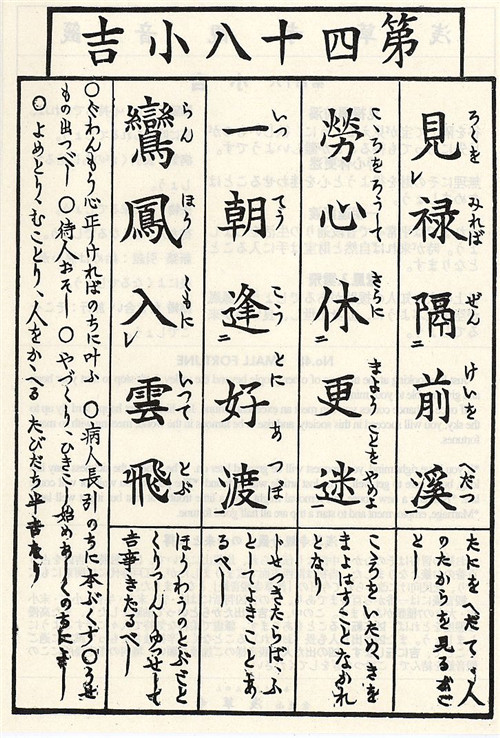 第四十八小吉
見禄隔前溪
ろくを みれば ぜん けいを へだつ
たにをへだてゝ人
のたからを見るがご
とし
勞心休更迷
こゝろをろうして さらに まよふことをやめよ
こゝろをいためきを
まよはすことなかれ
となり
一朝逢好渡
いつ てう こう とに あ
じせつきたらば、ふ
としてよきことあ
るべし
鸞鳳入雲飛
らん ほう くもに いつて とぶ
ほうわうのとぶごと
くりつしんしゆつせして
吉事きたるべし
○ぐわんもう心正ければのちに叶ふ ○病人長引のちに本ぶくす○うせ
もの出べし ○待人おそし ○やづくり、ひきこし始めあしくのちによし
○よめとり、むことり、人をかゝへる たびだち半吉なり